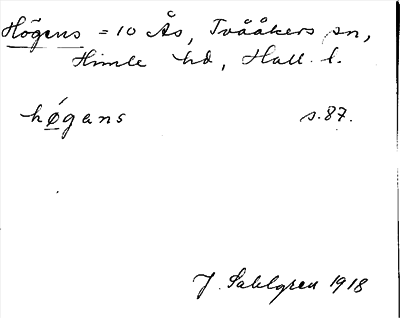 Högens = 10 Ås, Tvååkers sn,
Himle hd, Hall. l.
hǿgans s.87.
J. Sahlgren 1918